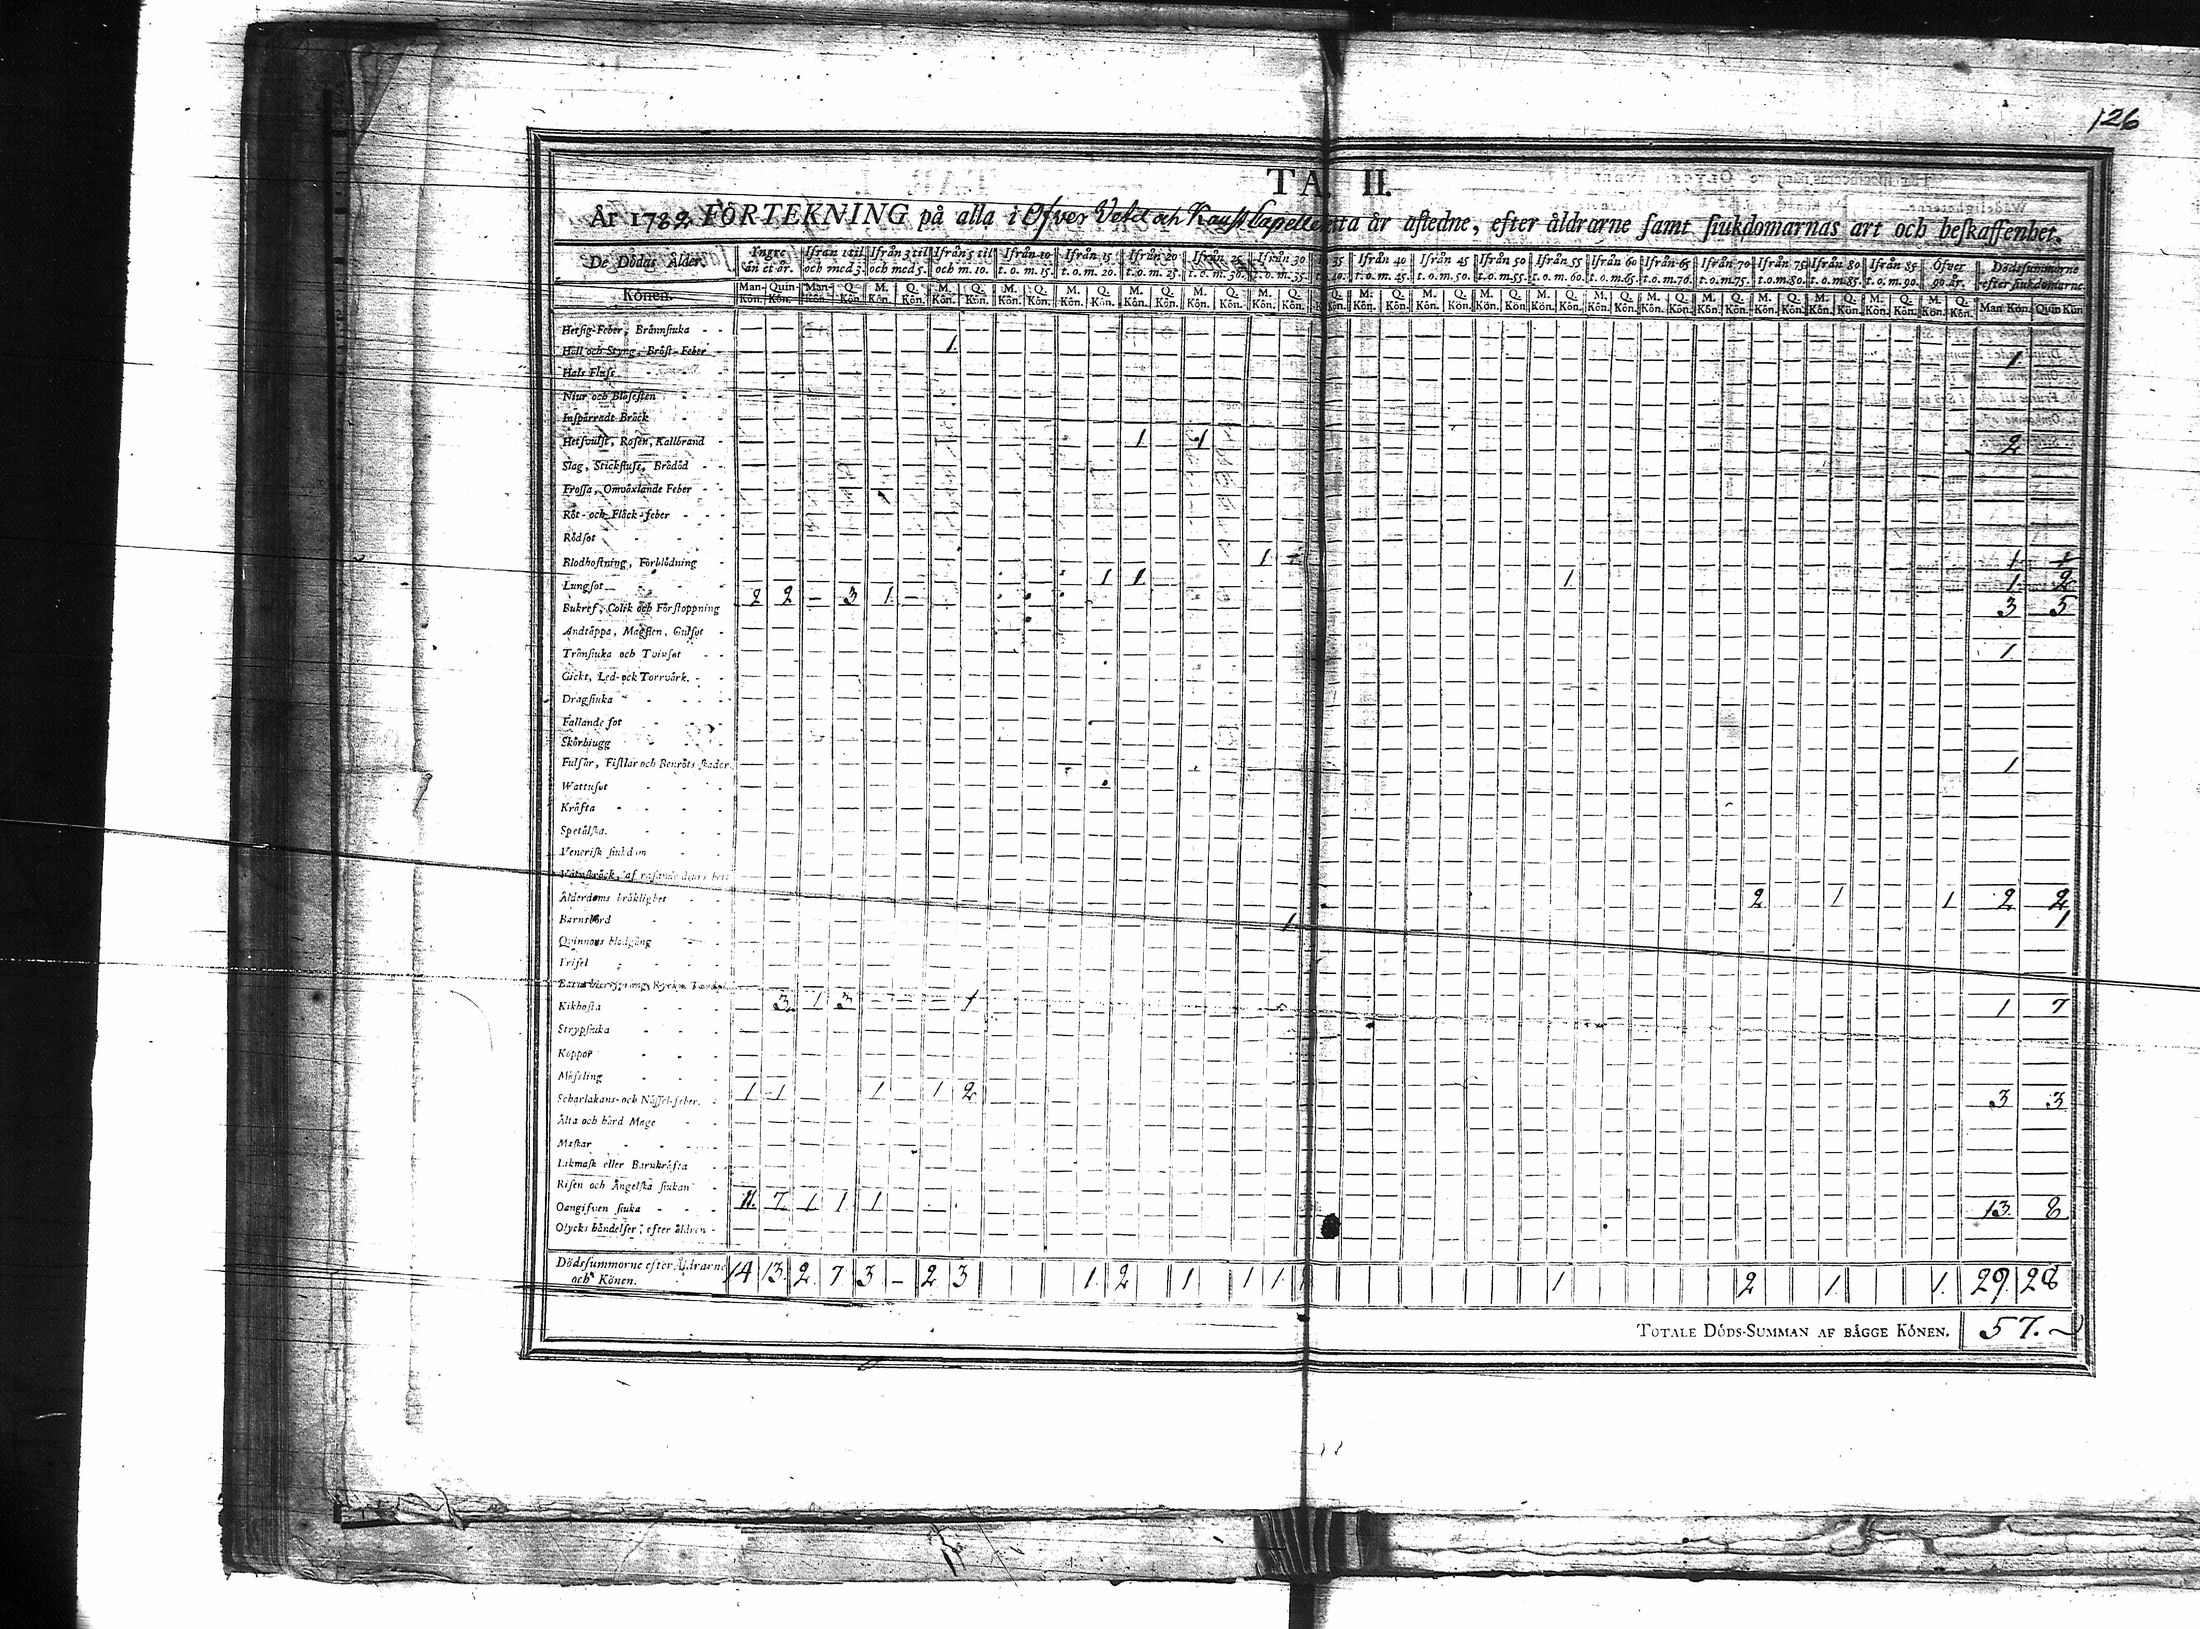 126
TA II.
År 1782 FÖRTEKNING på alla i Öfver Vetil och Kaust Capeller detta år aflidne, efter åldrarne samt siukdomarnas art och beskaffenhet.
De Dödas Ålder. Yngre än et år. Ifrån 1 til och med 3. Ifrån 3 til och med 5. Ifrån 5 til och m. 10. Ifrån 10 t. o. m. 15. Ifrån 15 t. o. m. 20. Ifrån 20 t. o. m. 25. Ifrån 25 t. o. m. 30. Ifrån 30 t. o. m. 35. 35 t. o. 40. Ifrån 40 t. o. m. 45. Ifrån 45 t. o. m. 50. Ifrån 50 t. o. m. 55. Ifrån 55 t. o. m. 60. Ifrån 60 t. o. m. 65. Ifrån 65 t. o. m. 70. Ifrån 70 t. o. m. 75. Ifrån 75 t. o. m. 80. Ifrån 80 t. o. m. 85. Ifrån 85 t. o. m. 90. Öfver 90 år. Dödssummorne efter siukdomarne.
Könen. Man-Kön. Quin-Kön. Man-Kön. Q. Kön. M. Kön. Q. Kön. M. Kön. Q. Kön. M. Kön. Q. Kön. M. Kön. Q. Kön. M. Kön. Q. Kön. M. Kön. Q. Kön. M. Kön. Q. Kön. Kön. M. Kön. Q. Kön. M. Kön. Q. Kön. M. Kön. Q. Kön. M. Kön. Q. Kön. M. Kön. Q. Kön. M. Kön. Q. Kön. M. Kön. Q. Kön. M. Kön. Q. Kön. M. Kön. Q. Kön. M. Kön. Q. Kön. M. Kön. Q. Kön. Man Kön. Quin Kön
Hetsig-Feber, Brännsiuka
Håll och Styng, Bröst-Feber 1. 1
Hals Fluss
Niur och Blåsesten
Inspärradt Bråck
Hetsvulst, Rosen, Kallbrand 1 1 2
Slag, Stickfluss, Brådöd
Frossa, Omväxlande Feber 1
Röt- och Fläck-feber
Rödsot
Blodhostning, Förblödning 1 1 1. 1
Lungsot 1 1 1 1. 2
Bukref, Colik och Förstoppning 2 2 - 3 1. - 3 5
Andtäppa, Magsten, Gulsot
Trånsiuka och Tvinsot 1.
Gickt, Led- ock Torrvärk.
Dragsiuka
Fallande sot
Skörbiugg
Fulsår, Fistlar och Benröts skador 1
Wattusot
Kräfta
Spetälska.
Venerisk siukdom
Vatuskräck, af rasande diurs bett
Ålderdoms bräklighet 2 1 1 2 2
Barnsbörd 1 1
Quinnors blodgång
Frisel
Kikhosta 3 1 3 1 1 7
Strypsiuka
Koppor
Mässling
Scharlakans- och Nässel-feber. 1 1 1 1 2 3 3
Älta och hård Mage
Maskar
Likmask eller Barnkräfta
Risen och Ängelska siukan
Oangifven siuka 11. 7 1 1 1 13. 8
Olycks händelser, efter äldren
Dödssummorne efter Åldrarne och Könen. 14 13. 2. 7. 3 - 2 3 1. 2 1 1 1. 1 2 1. 1. 29. 28
TOTALE DÖDS-SUMMAN AF BÄGGE KÖNEN. 57.